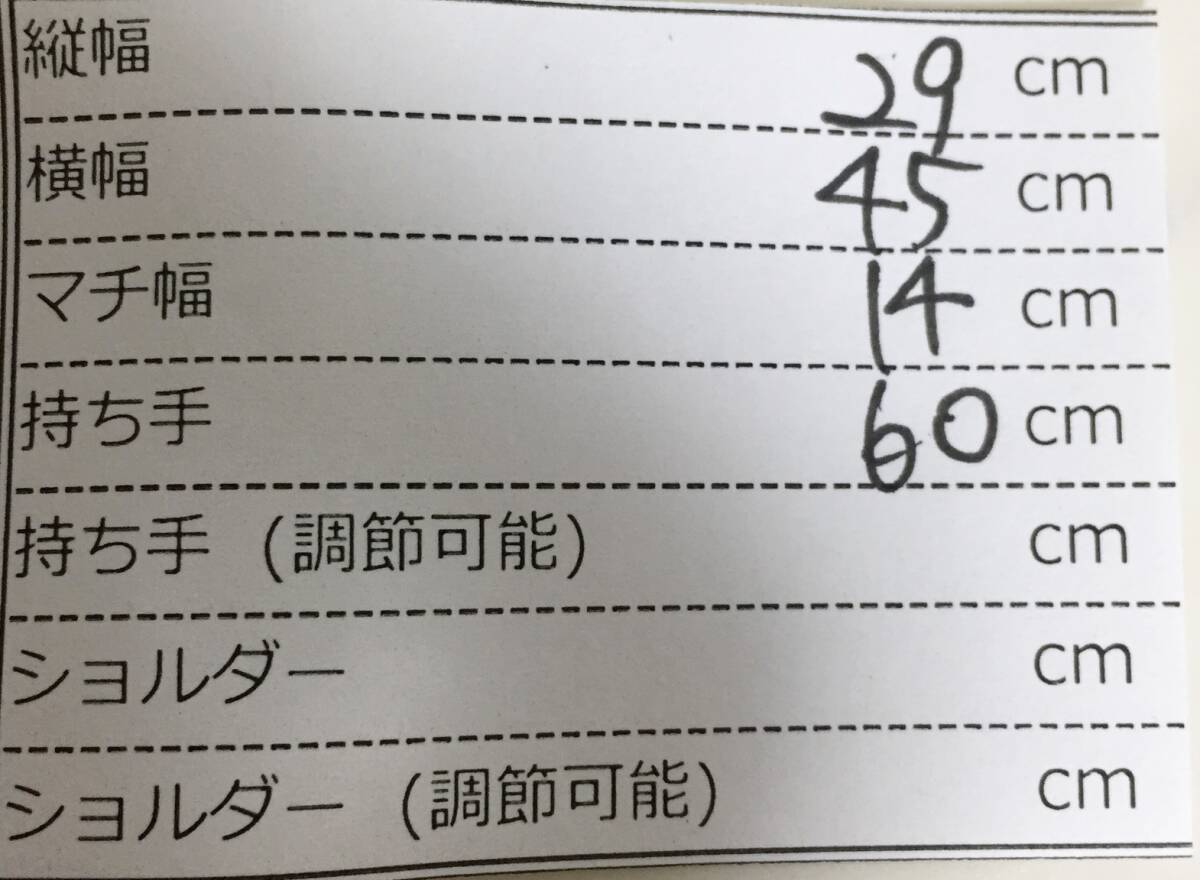 縦幅 29 cm
横幅 45 cm
マチ幅 14 cm
持ち手 60 cm
持ち手 (調節可能) cm
ショルダー cm
ショルダー (調節可能) cm